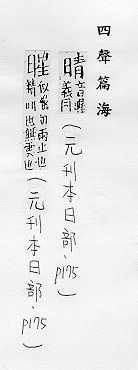 四聲篇海
晴 音與義同(元刊本日部·p175)
暒 似盈切雨止也精明也無雲也(元刊本日部·p175)